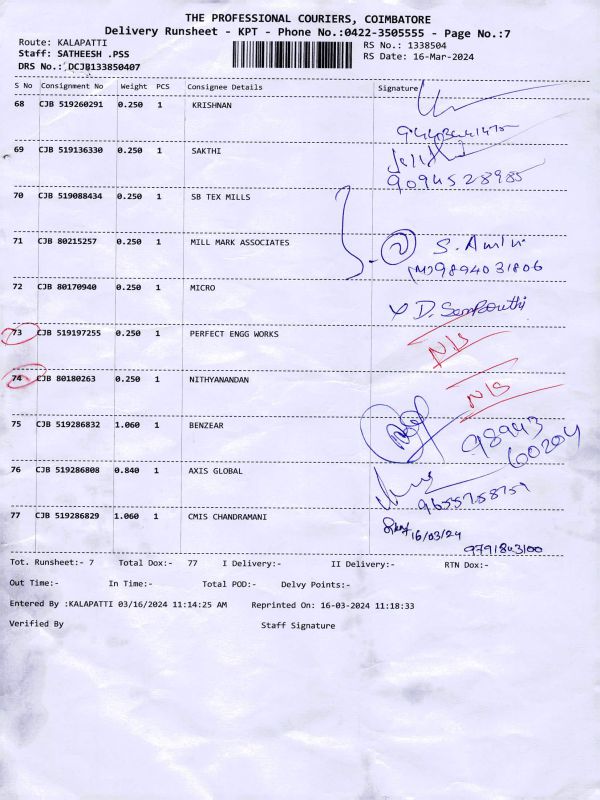 THE PROFESSIONAL COURIERS, COIMBATORE
Delivery Runsheet - KPT - Phone No.:0422-3505555 - Page No.:7
Route: KALAPATTI
RS No.: 1338504
Staff: SATHEESH .PSS
RS Date: 16-Mar-2024
DRS No.: DCJB133850407
S No Consignment No Weight PCS Consignee Details Signature
68 CJB 519260291 0.250 1 KRISHNAN
69 CJB 519136330 0.250 1 SAKTHI
9094528985
70 CJB 519088434 0.250 1 SB TEX MILLS
71 CJB 80215257 0.250 1 MILL MARK ASSOCIATES
(M)9894031806
72 CJB 80170940 0.250 1 MICRO
73 CJB 519197255 0.250 1 PERFECT ENGG WORKS N/S
74 CJB 80180263 0.250 1 NITHYANANDAN N/S
75 CJB 519286832 1.060 1 BENZEAR 98943
60204
76 CJB 519286808 0.840 1 AXIS GLOBAL
77 CJB 519286829 1.060 1 CMIS CHANDRAMANI
16/03/24
9791843100
Tot. Runsheet:- 7 Total Dox:- 77 I Delivery:- II Delivery:- RTN Dox:-
Out Time:- In Time:- Total POD:- Delvy Points:-
Entered By :KALAPATTI 03/16/2024 11:14:25 AM Reprinted On: 16-03-2024 11:18:33
Verified By Staff Signature